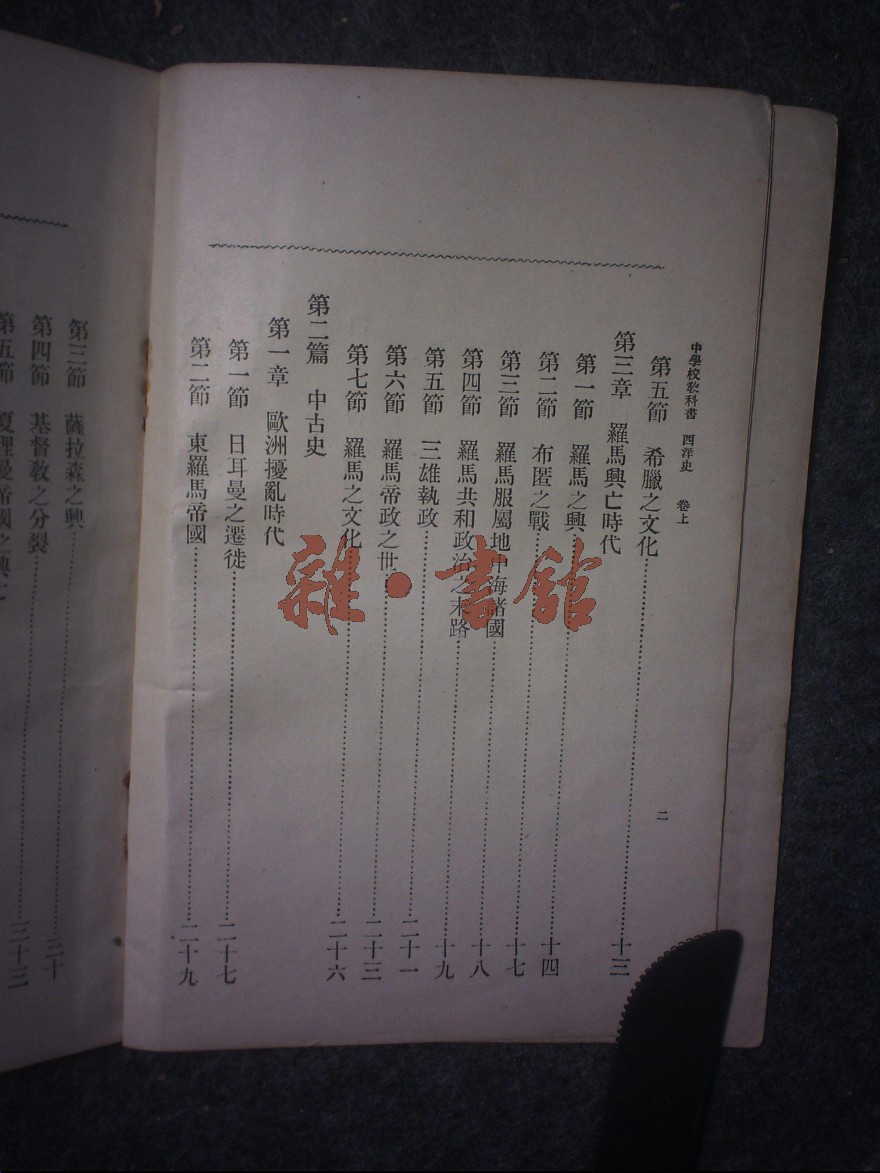 中學校教科書 西洋史 卷上
二
第五節 希臘之文化……十三
第三章 羅馬興亡時代
第一節 羅馬之興……十四
第二節 布匿之戰……十七
第三節 羅馬服屬地中海諸國……十八
第四節 羅馬共和政治之末路……十九
第五節 三雄執政……二十一
第六節 羅馬帝政之世……二十三
第七節 羅馬之文化……二十六
第二篇 中古史
第一章 歐洲擾亂時代
第一節 日耳曼之遷徙……二十七
第二節 東羅馬帝國……二十九
第三節 薩拉森之興……三十
第四節 基督教之分裂
第五節 夏理曼帝國之興亡……三十三
雜·書館